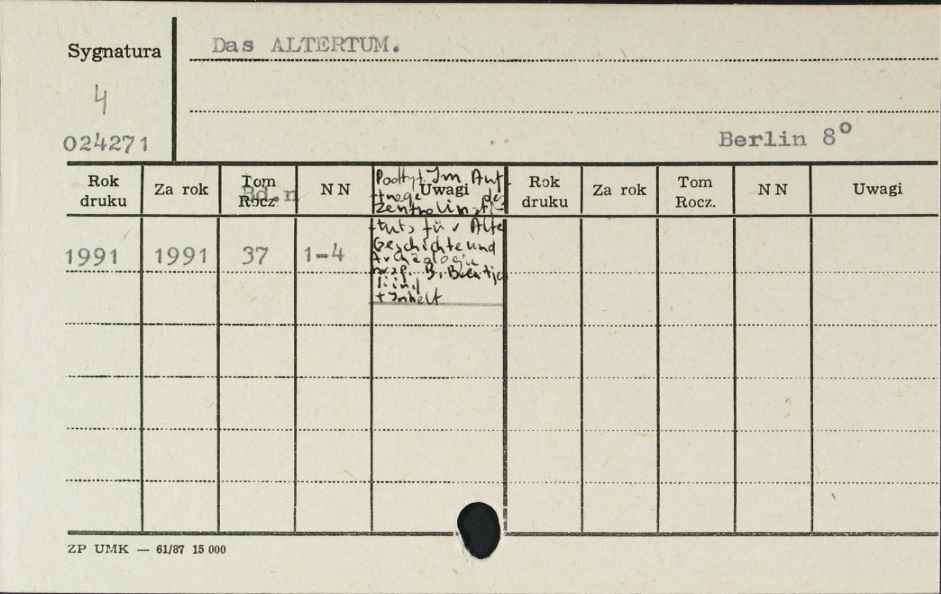 Sygnatura
Das ALTERTUM.
4
024271
Berlin 8°
Rok druku Za rok Tom Rocz. Bd.n N N Uwagi Rok druku Za rok Tom Rocz. N N Uwagi
Podtyt. Im Auf-
trage des
Zentralinsti-
tuts für Alte
1991 1991 37 1-4
Geschichte und
Archäologie
hrsg. B.
+ Inhalt
ZP UMK — 61/87 15 000